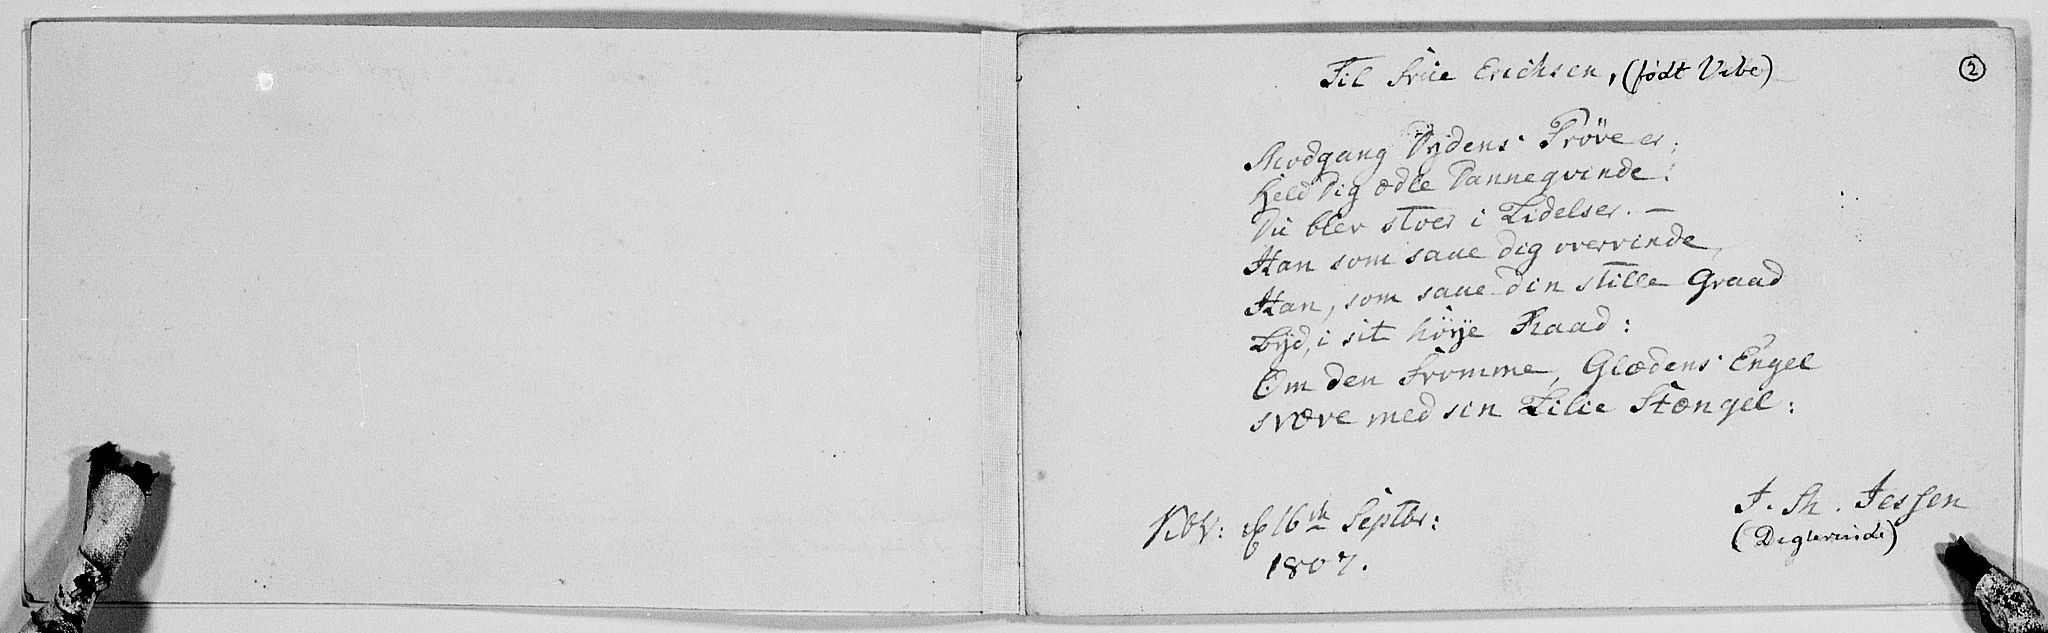 Til Frue Erichsen, (født Vibe)
2
Modgang Dydens Prøve er;
held Dig ædle Danneqvinde!
Du blev stoer i Lidelser. —
Han som saae dig overvinde,
Han, som saae din stille Graad
Lyd, i sit höye Raad:
Om den Fromme, Glædens Engel
svæve med sin Lilie Stængel:
Kbh: d 16de Septbr:
1807.
J. M. Jessen
(Digterinde)